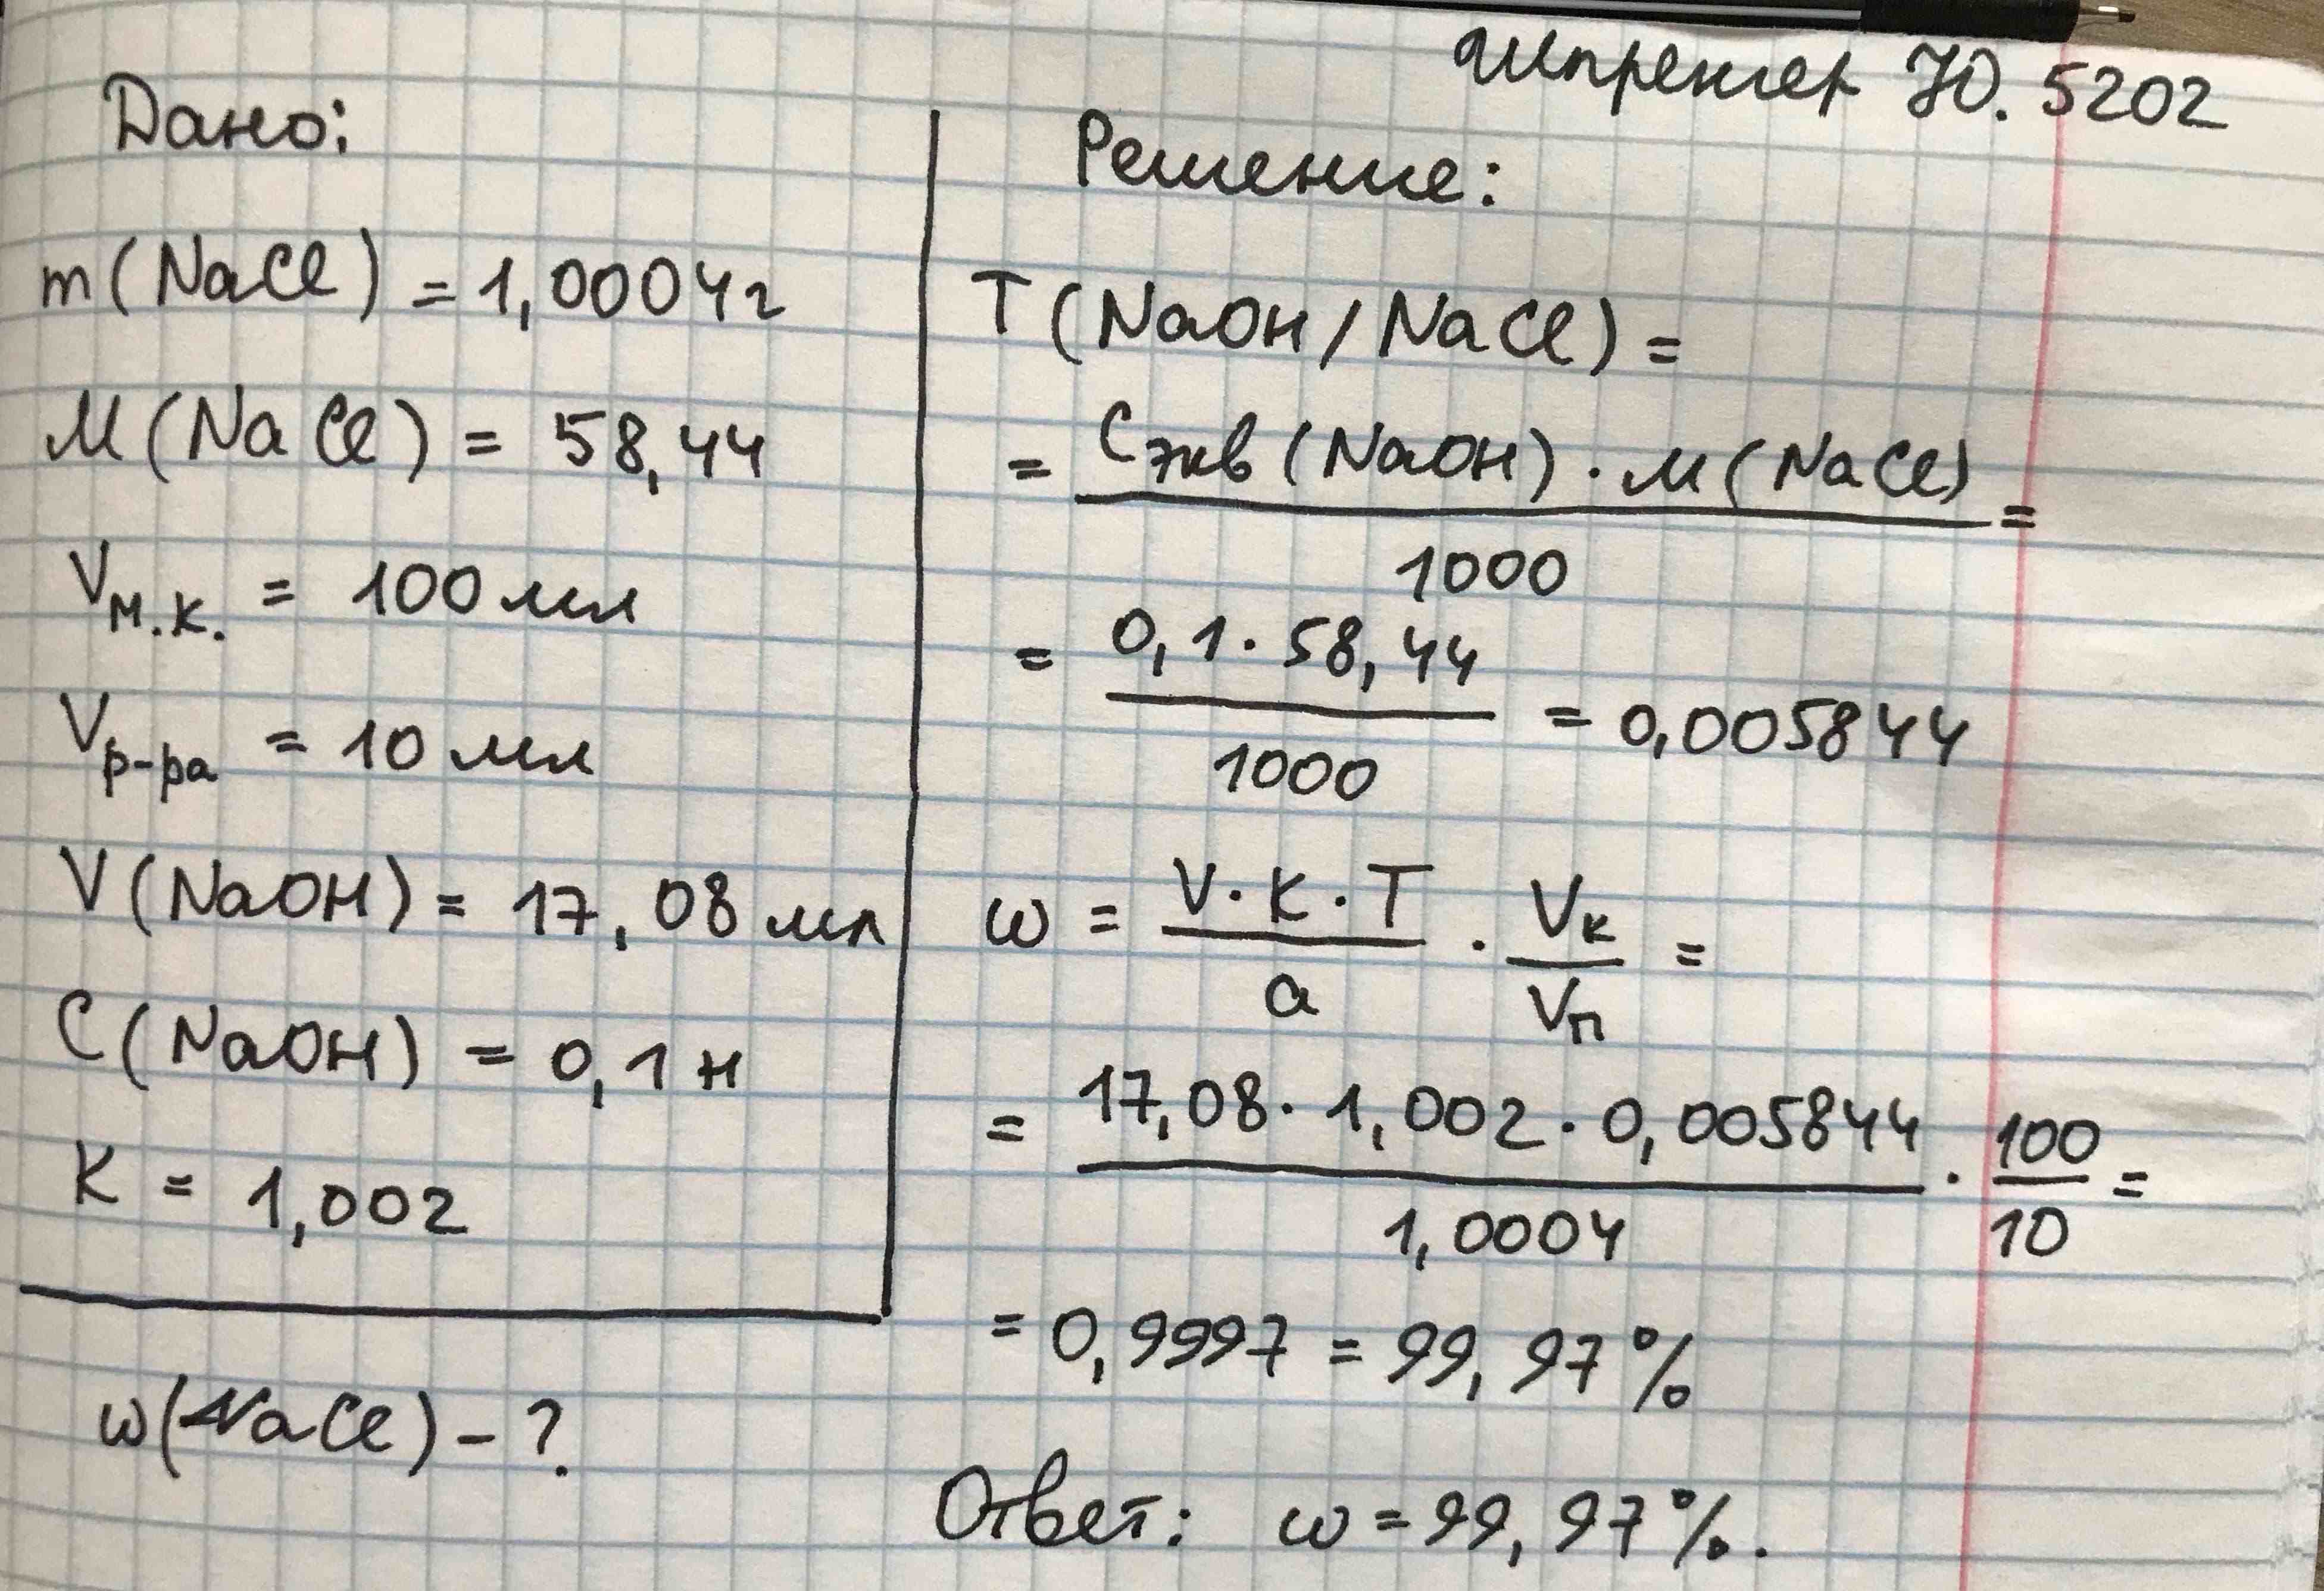 Шпренгер Ю. 5202
Дано:
m(NaCl) = 1,0004г
M(NaCl) = 58,44
Vм.к. = 100 мл
Vр-ра = 10 мл
V(NaOH) = 17,08 мл
C(NaOH) = 0,1 н
K = 1,002
ω(NaCl) - ?
Решение:
T(NaOH/NaCl) =
= Cэкв(NaOH) · M(NaCl) =
1000
= 0,1 · 58,44
1000
= 0,005844
ω = V · K · T / a · Vк / Vп =
= 17,08 · 1,002 · 0,005844 / 1,0004 · 100 / 10 =
= 0,9997 = 99,97%
Ответ: ω = 99,97%.